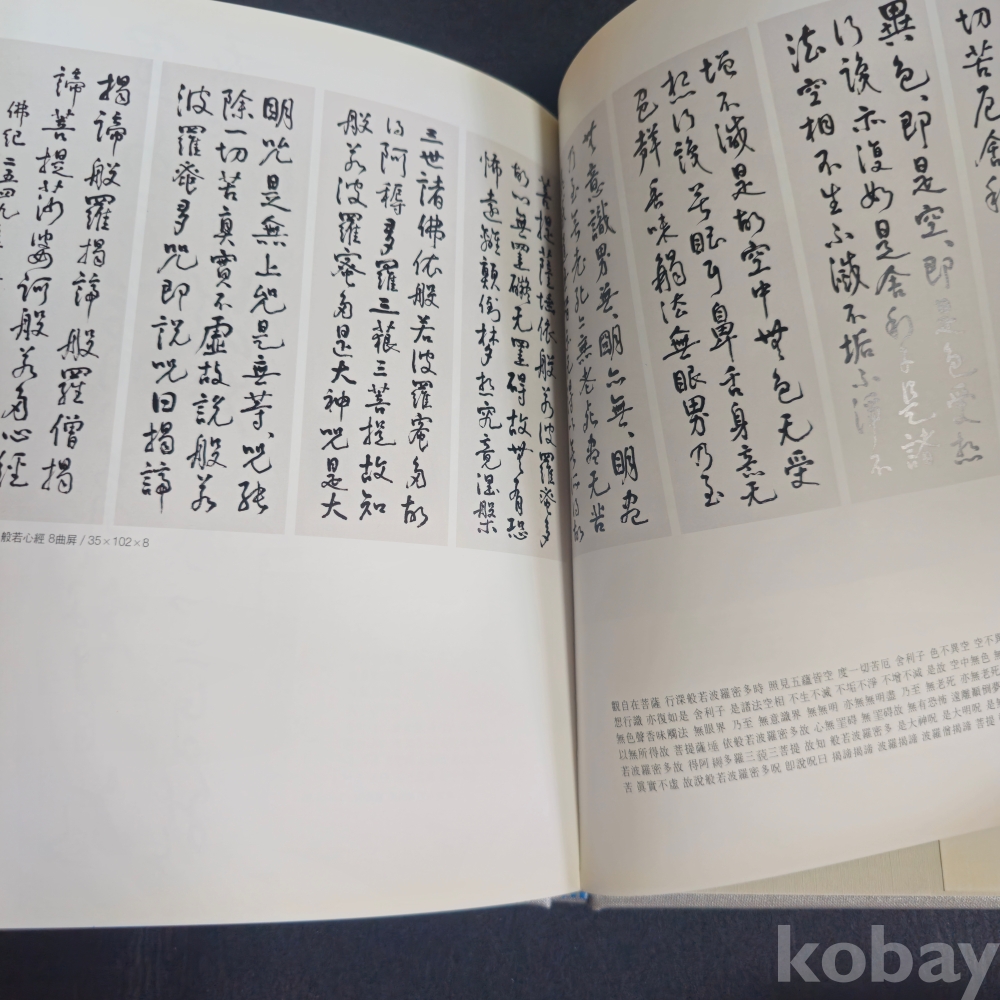 切苦厄舍利
異色、即是空、即是色受想
行識亦復如是舍利子是諸
法空相不生不滅不垢不淨不
增不減是故空中無色无受
想行識无眼耳鼻舌身意无
色聲香味觸法無眼界乃至
無意識界無、明亦無、明盡
乃至無老死亦無老死盡无苦
菩提薩埵依般若波羅蜜多
故心無罣礙无罣碍故無有恐
怖遠離顛倒夢想究竟涅槃
三世諸佛依般若波羅蜜多故
得阿耨多羅三藐三菩提故知
般若波羅蜜多是大神呪是大
明呪是無上呪是無等、呪能
除一切苦真實不虛故說般若
波羅蜜多呪即說呪曰揭諦
揭諦般羅揭諦般羅僧揭
諦菩提莎婆訶般若多心經
佛紀二五四九
般若心經 8曲屛 / 35×102×8
觀自在菩薩 行深般若波羅密多時 照見五蘊皆空 度一切苦厄 舍利子 色不異空 空不異
想行識 亦復如是 舍利子 是諸法空相 不生不滅 不垢不淨 不增不減 是故 空中無色 無
無色聲香味觸法 無眼界 乃至 無意識界 無無明 亦無無明盡 乃至 無老死 亦無老死
以無所得故 菩提薩埵 依般若波羅密多故 心無罣碍 無罣碍故 無有恐怖 遠離顚倒夢
若波羅密多故 得阿耨多羅三藐三菩提 故知 般若波羅密多 是大神呪 是大明呪 是無
苦 眞實不虛 故說般若波羅密多呪 卽說呪曰 揭諦揭諦 波羅揭諦 波羅僧揭諦 菩提
kobay